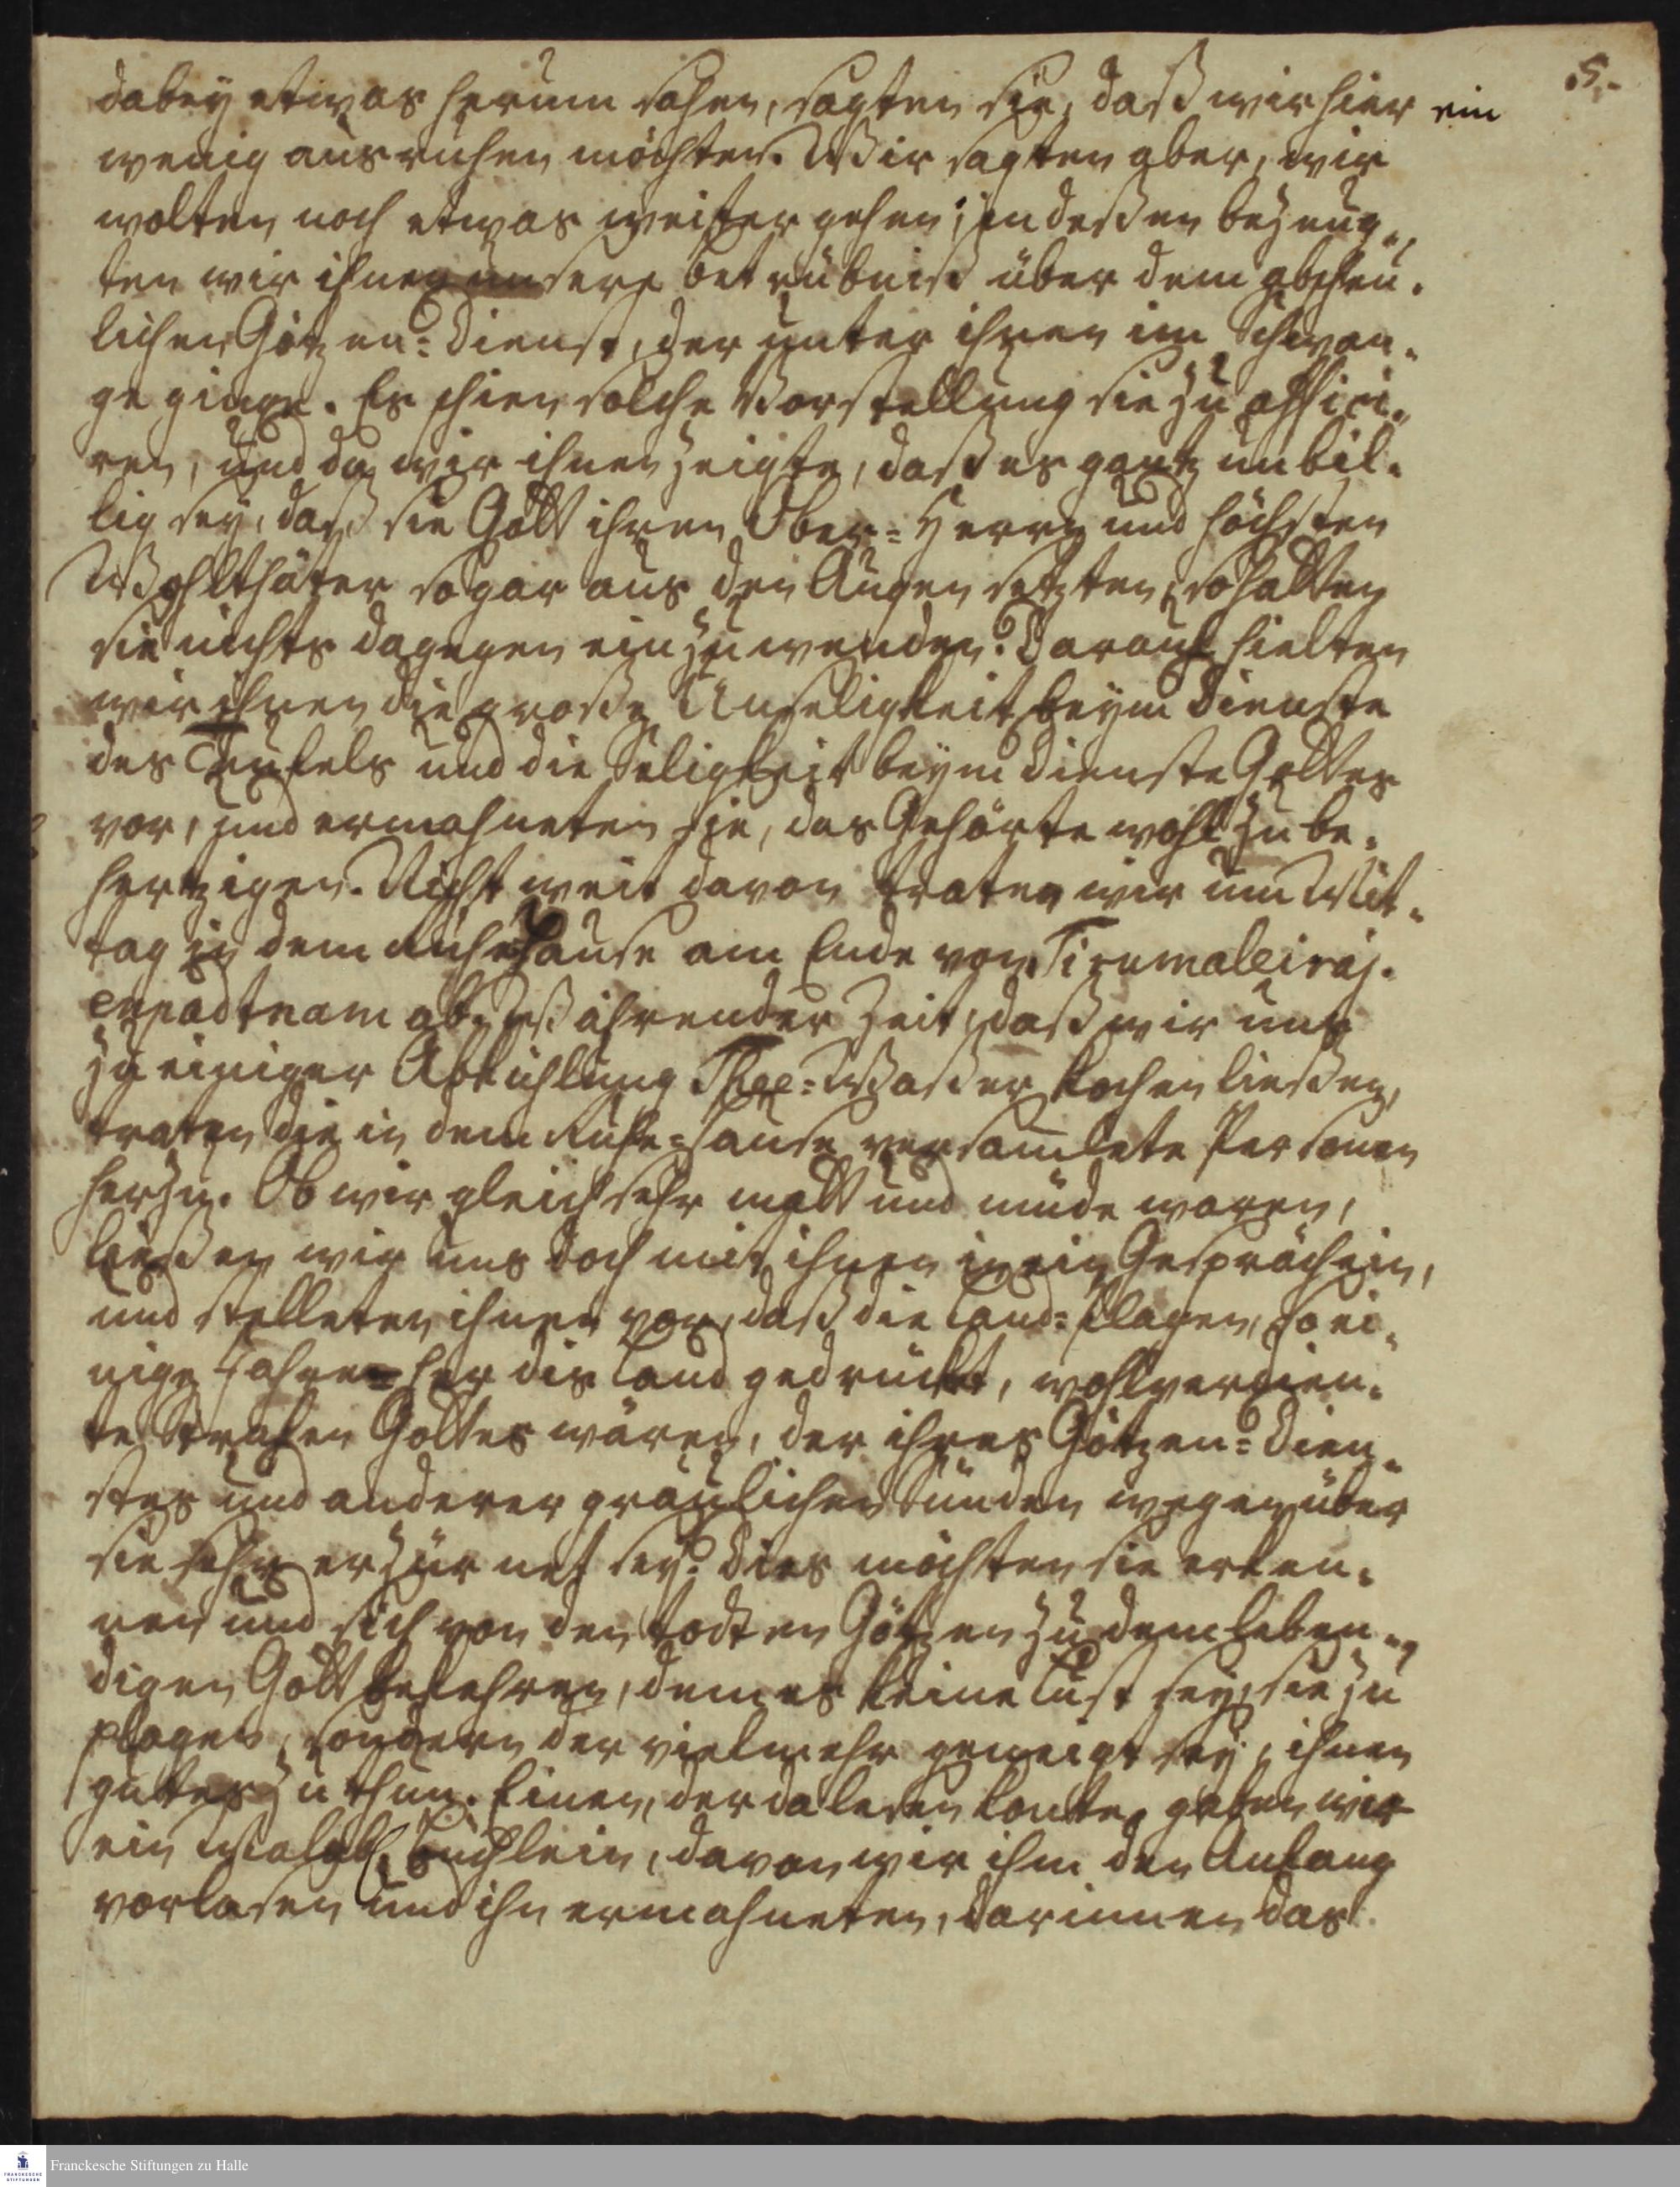 5.
dabey etwas herum sahen, sagten sie, daß wir hier ein
wenig ausruhen möchten. Wir sagten aber, wir
wolten noch etwas weiter gehen; indeßen bezeug-
ten wir ihnen unsere betrübniß über dem abscheu-
lichen Götzen-Dienst, der unter ihnen im Schwan-
ge ginge. Es schien solche Vorstellung sie zu affici-
ren, und da wir ihnen zeigte, daß es gantz unbil-
lig sey, daß sie Gott ihren Ober-Herrn und höchsten
Wohlthäter sogar aus den Augen setzten, so hatten
sie nichts dagegen einzuwenden. Darauf hielten
wir ihnen die große Unseligkeit beym Dienste
des Teufels und die Seligkeit beym Dienste Gottes
vor, und ermahneten sie, das Gehörte wohl zu be-
hertzigen. Nicht weit davon traten wir um Mit-
tag in dem Ruhehause am Ende von Tirumaleiraj-
enpadtnam ab. Währender Zeit, daß wir uns
zu einiger Abkühlung Thee-Waßer kochen ließen,
traten die in dem Ruhe-Hause versamlete Personen
herzu. Ob wir gleich sehr matt und müde waren,
ließen wir uns doch mit ihnen in ein Gespräch ein,
und stelleten ihnen vor, daß die Land-Plagen, so ei-
nige Jahre her dis Land gedrückt, wohlverdien-
te Strafen Gottes wären, der ihres Götzen-Dien-
stes und anderer greulichen Sünden wegen über
sie sehr erzürnet sey. Dies möchten sie erken-
nen und sich von den todten Götzen zu dem leben-
digen Gott bekehren, dem es keine Lust sey, sie zu
plagen, sondern der vielmehr geneigt sey, ihnen
gutes zu thun. Einen, der da lesen konte, gaben wir
ein Malab. Büchlein, davon wir ihm den Anfang
vorlasen und ihn ermahneten, darinnen das
Franckesche Stiftungen zu Halle